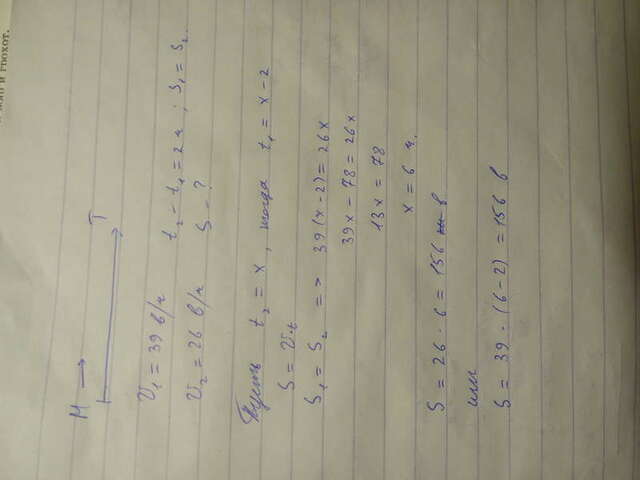 и грохот.
М
Т
V₁ = 39 в/ч
t₂ - t₁ = 2 ч ; S₁ = S₂.
V₂ = 26 в/ч
S - ?
Пусть t₂ = x, тогда t₁ = x - 2
S = V·t
S₁ = S₂ => 39(x-2) = 26x
39x - 78 = 26x
13x = 78
x = 6 ч.
S = 26 · 6 = 156 в
или
S = 39 · (6-2) = 156 в